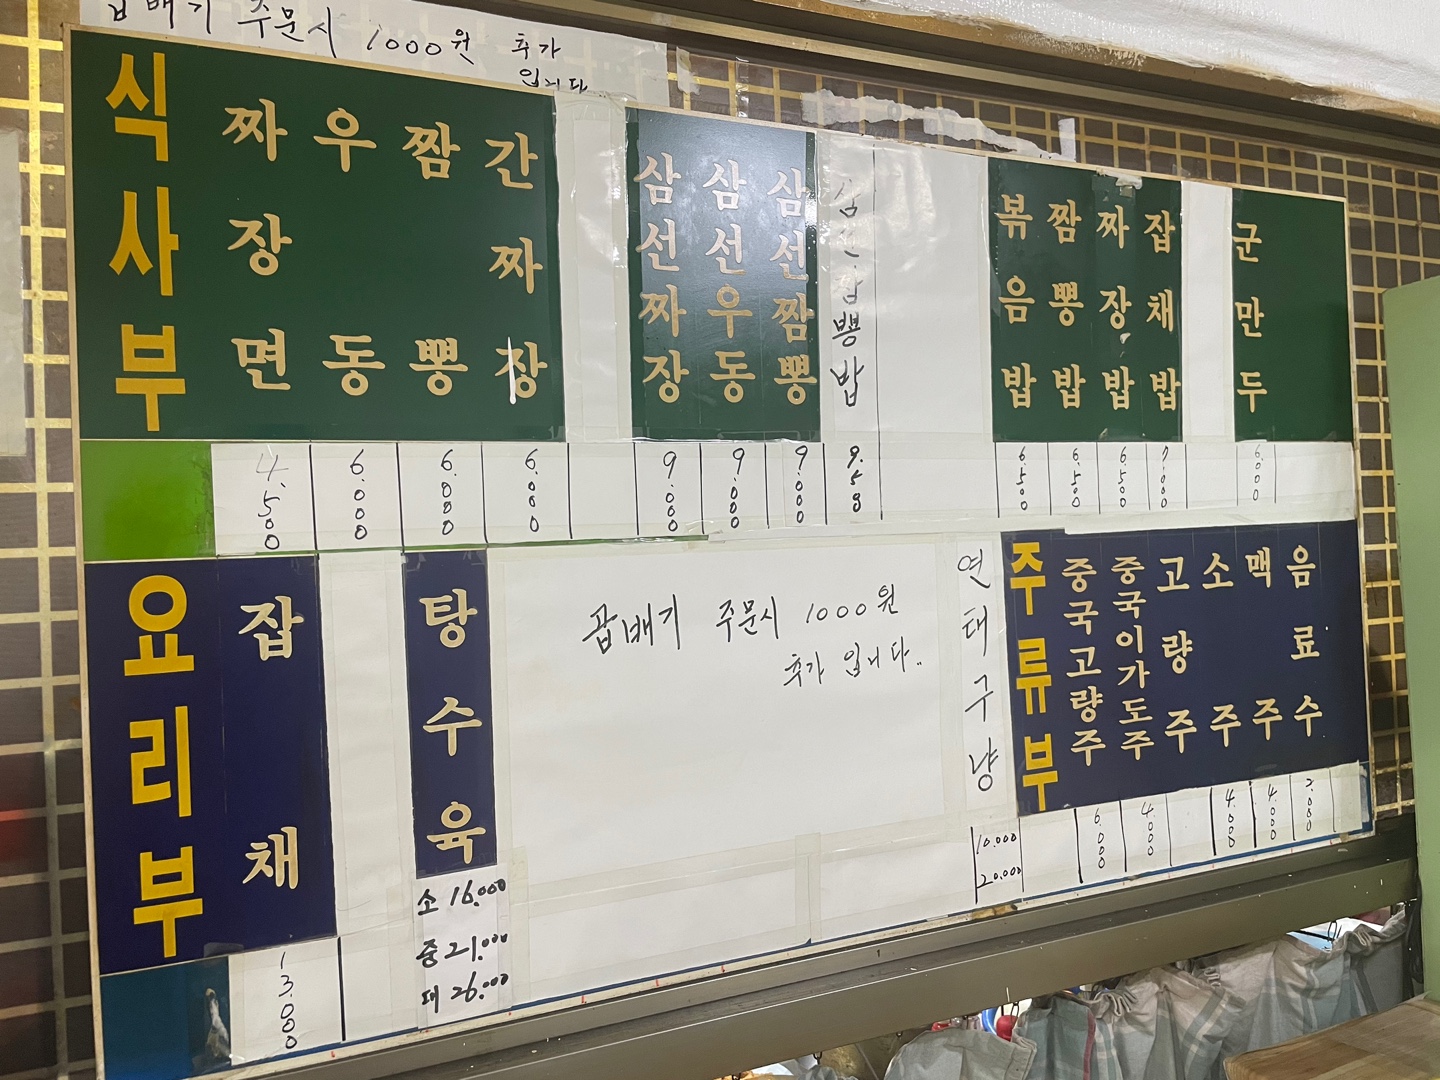 곱배기 주문시 1000원 추가
입니다
식사부
짜장면 4.500
우동 6.000
짬뽕 6.000
간짜장 6.000
삼선짜장 9.000
삼선우동 9.000
삼선짬뽕 9.000
삼선짬뽕밥 9.50
볶음밥 6.500
짬뽕밥 6.500
짜장밥 6.500
잡채밥 7.000
군만두 6.000
요리부
잡채 13.000
탕수육
소 16.000
중 21.000
대 26.000
곱배기 주문시 1000원
추가 입니다..
연태구냥
10.000
20.000
주류부
중국고량주 6.000
중국이가도주 4.000
고량주
소주 4.000
맥주 4.000
음료수 2.000